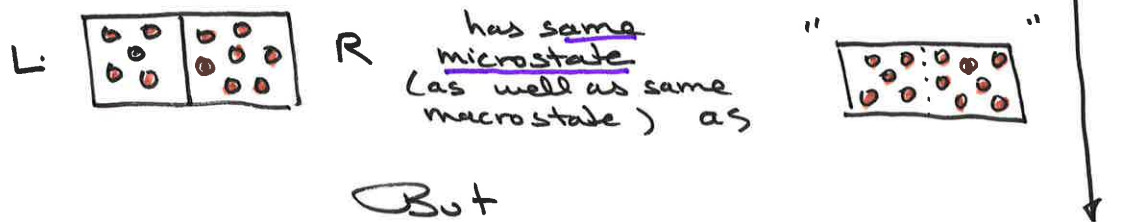 L: R
has same
microstate
(as well as same
macrostate) as
" "
But